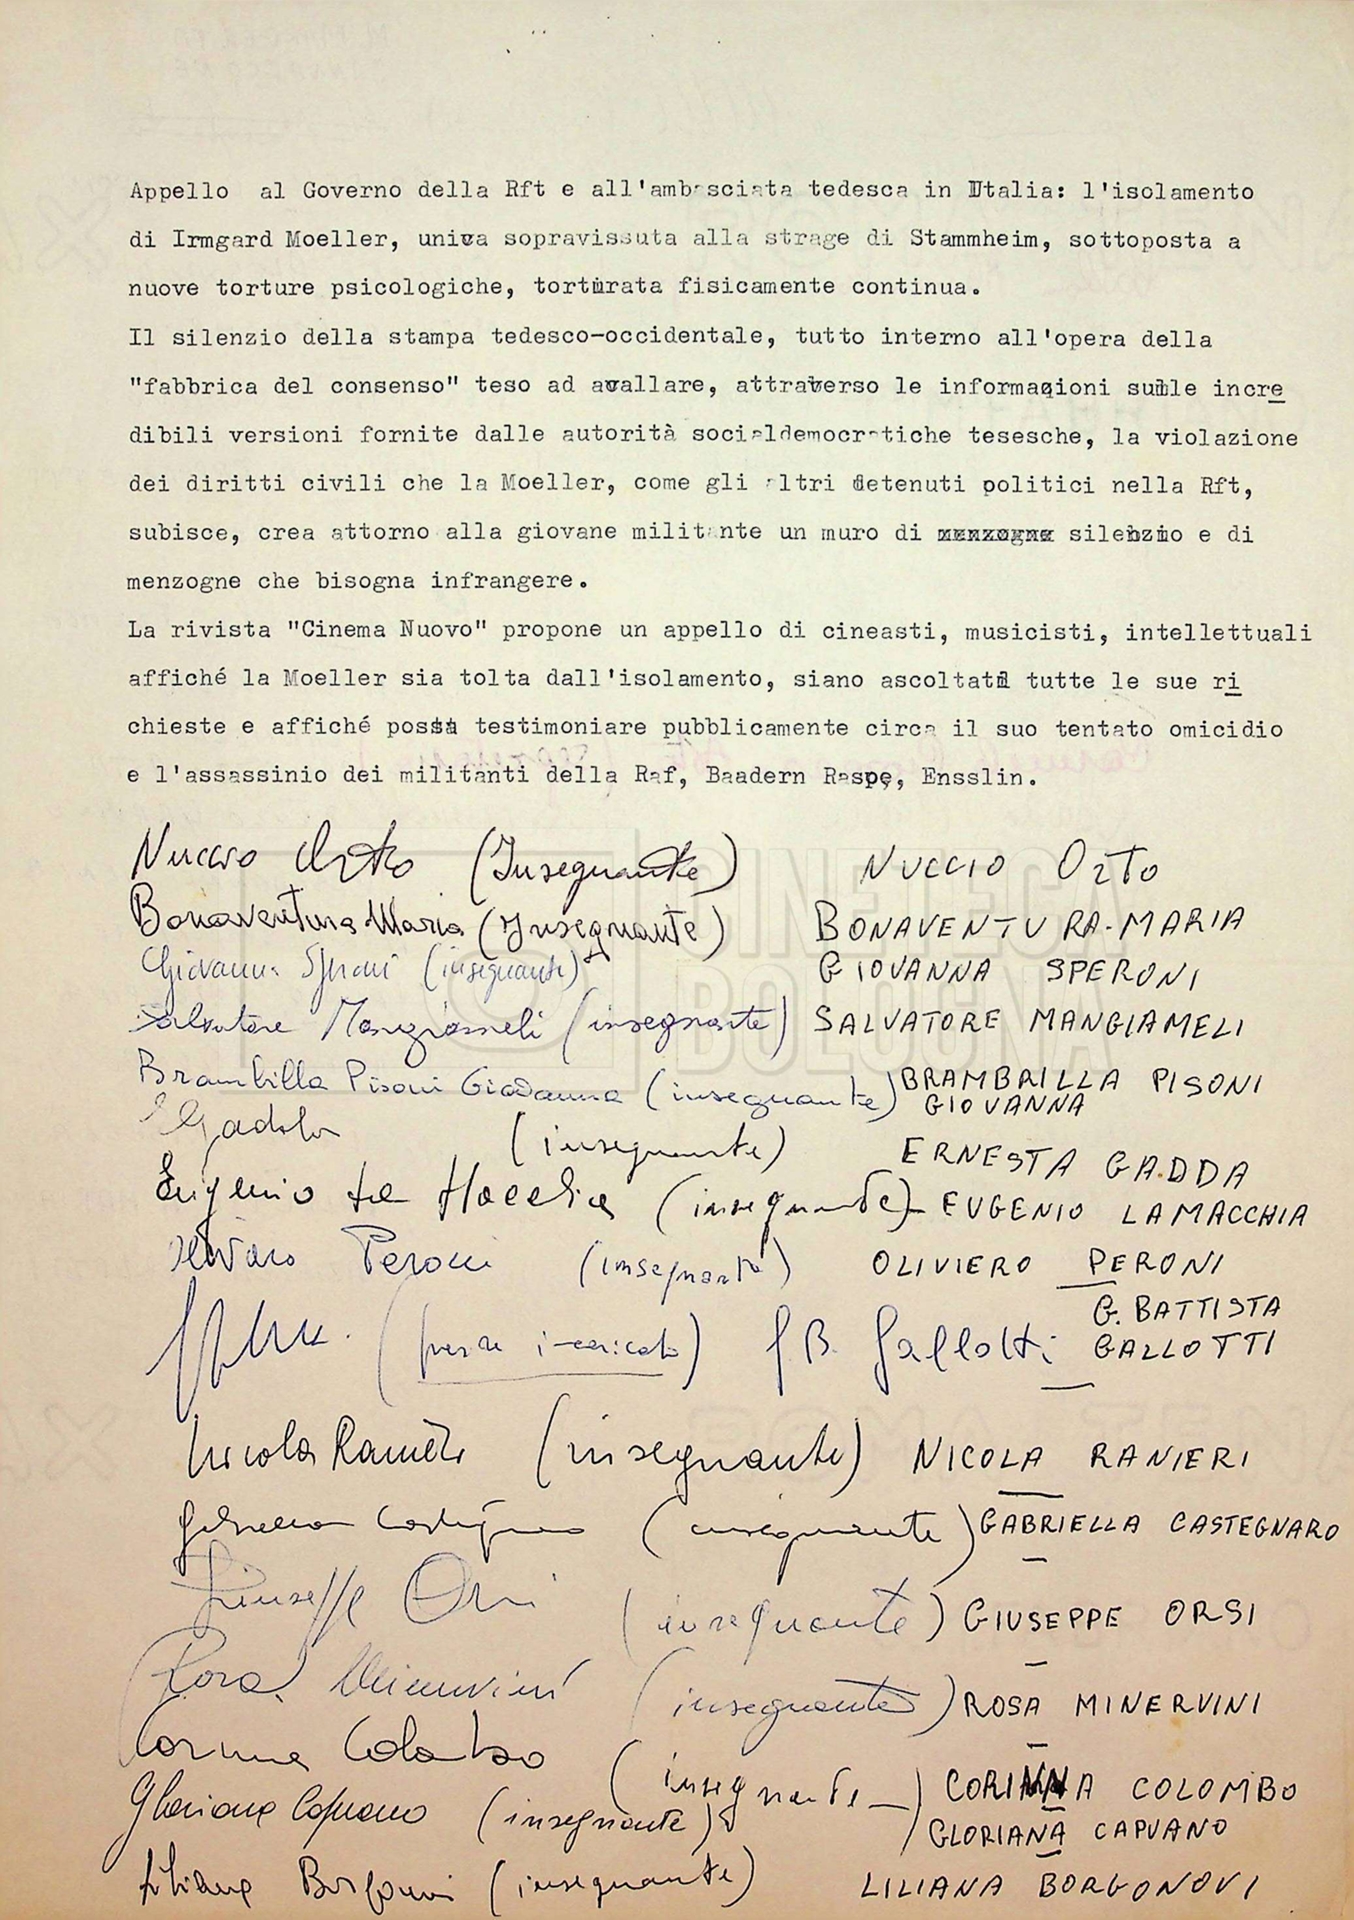 Appello al Governo della Rft e all'ambasciata tedesca in Italia: l'isolamento
di Irmgard Moeller, unica sopravissuta alla strage di Stammheim, sottoposta a
nuove torture psicologiche, torturata fisicamente continua.
Il silenzio della stampa tedesco-occidentale, tutto interno all'opera della
"fabbrica del consenso" teso ad avallare, attraverso le informazioni sulle incre
dibili versioni fornite dalle autorità socialdemocratiche tesesche, la violazione
dei diritti civili che la Moeller, come gli altri detenuti politici nella Rft,
subisce, crea attorno alla giovane militante un muro di menzogne silenzio e di
menzogne che bisogna infrangere.
La rivista "Cinema Nuovo" propone un appello di cineasti, musicisti, intellettuali
affiché la Moeller sia tolta dall'isolamento, siano ascoltate tutte le sue ri
chieste e affiché possa testimoniare pubblicamente circa il suo tentato omicidio
e l'assassinio dei militanti della Raf, Baadern Raspe, Ensslin.
Nuccio Orto (Insegnante) NUCCIO ORTO
Bonaventura Maria (Insegnante) BONAVENTURA-MARIA
Giovanna Speroni (insegnante) GIOVANNA SPERONI
Salvatore Mangiameli (insegnante) SALVATORE MANGIAMELI
Brambilla Pisoni Giovanna (insegnante) BRAMBRILLA PISONI
GIOVANNA
(insegnante) ERNESTA GADDA
Eugenio La Macchia (insegnante) EUGENIO LAMACCHIA
Peroni (insegnante) OLIVIERO PERONI
(preside incaricato) G.B. Gallotti G. BATTISTA
GALLOTTI
Nicola Ranieri (insegnante) NICOLA RANIERI
Gabriella Castegnaro (insegnante) GABRIELLA CASTEGNARO
Giuseppe Orsi (insegnante) GIUSEPPE ORSI
Rosa Minervini (insegnante) ROSA MINERVINI
Corinna Colombo (insegnante) CORINNA COLOMBO
Gloriana Capuano (insegnante) GLORIANA CAPUANO
Liliana Borgonovi (insegnante) LILIANA BORGONOVI
CINETECA
BOLOGNA